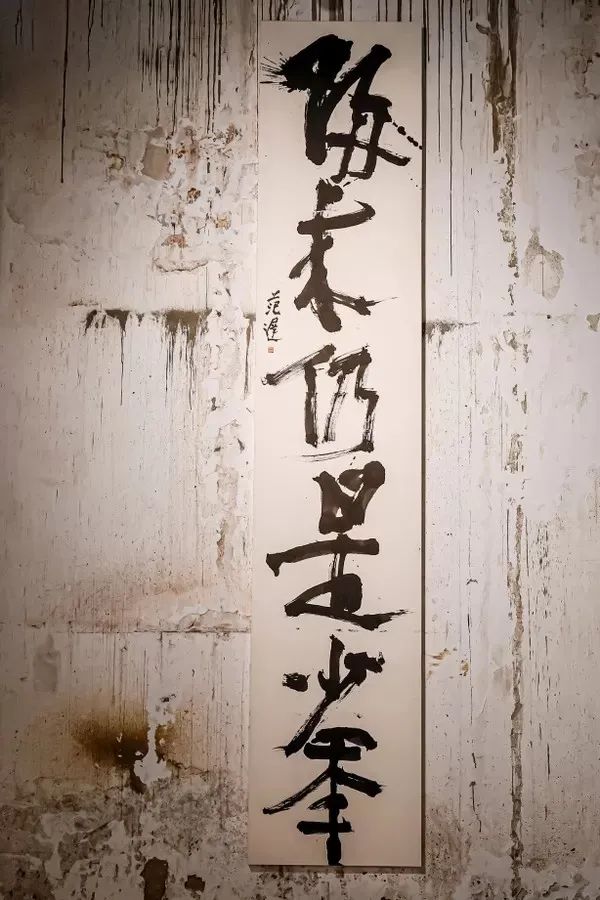 归来仍是少年
范遲